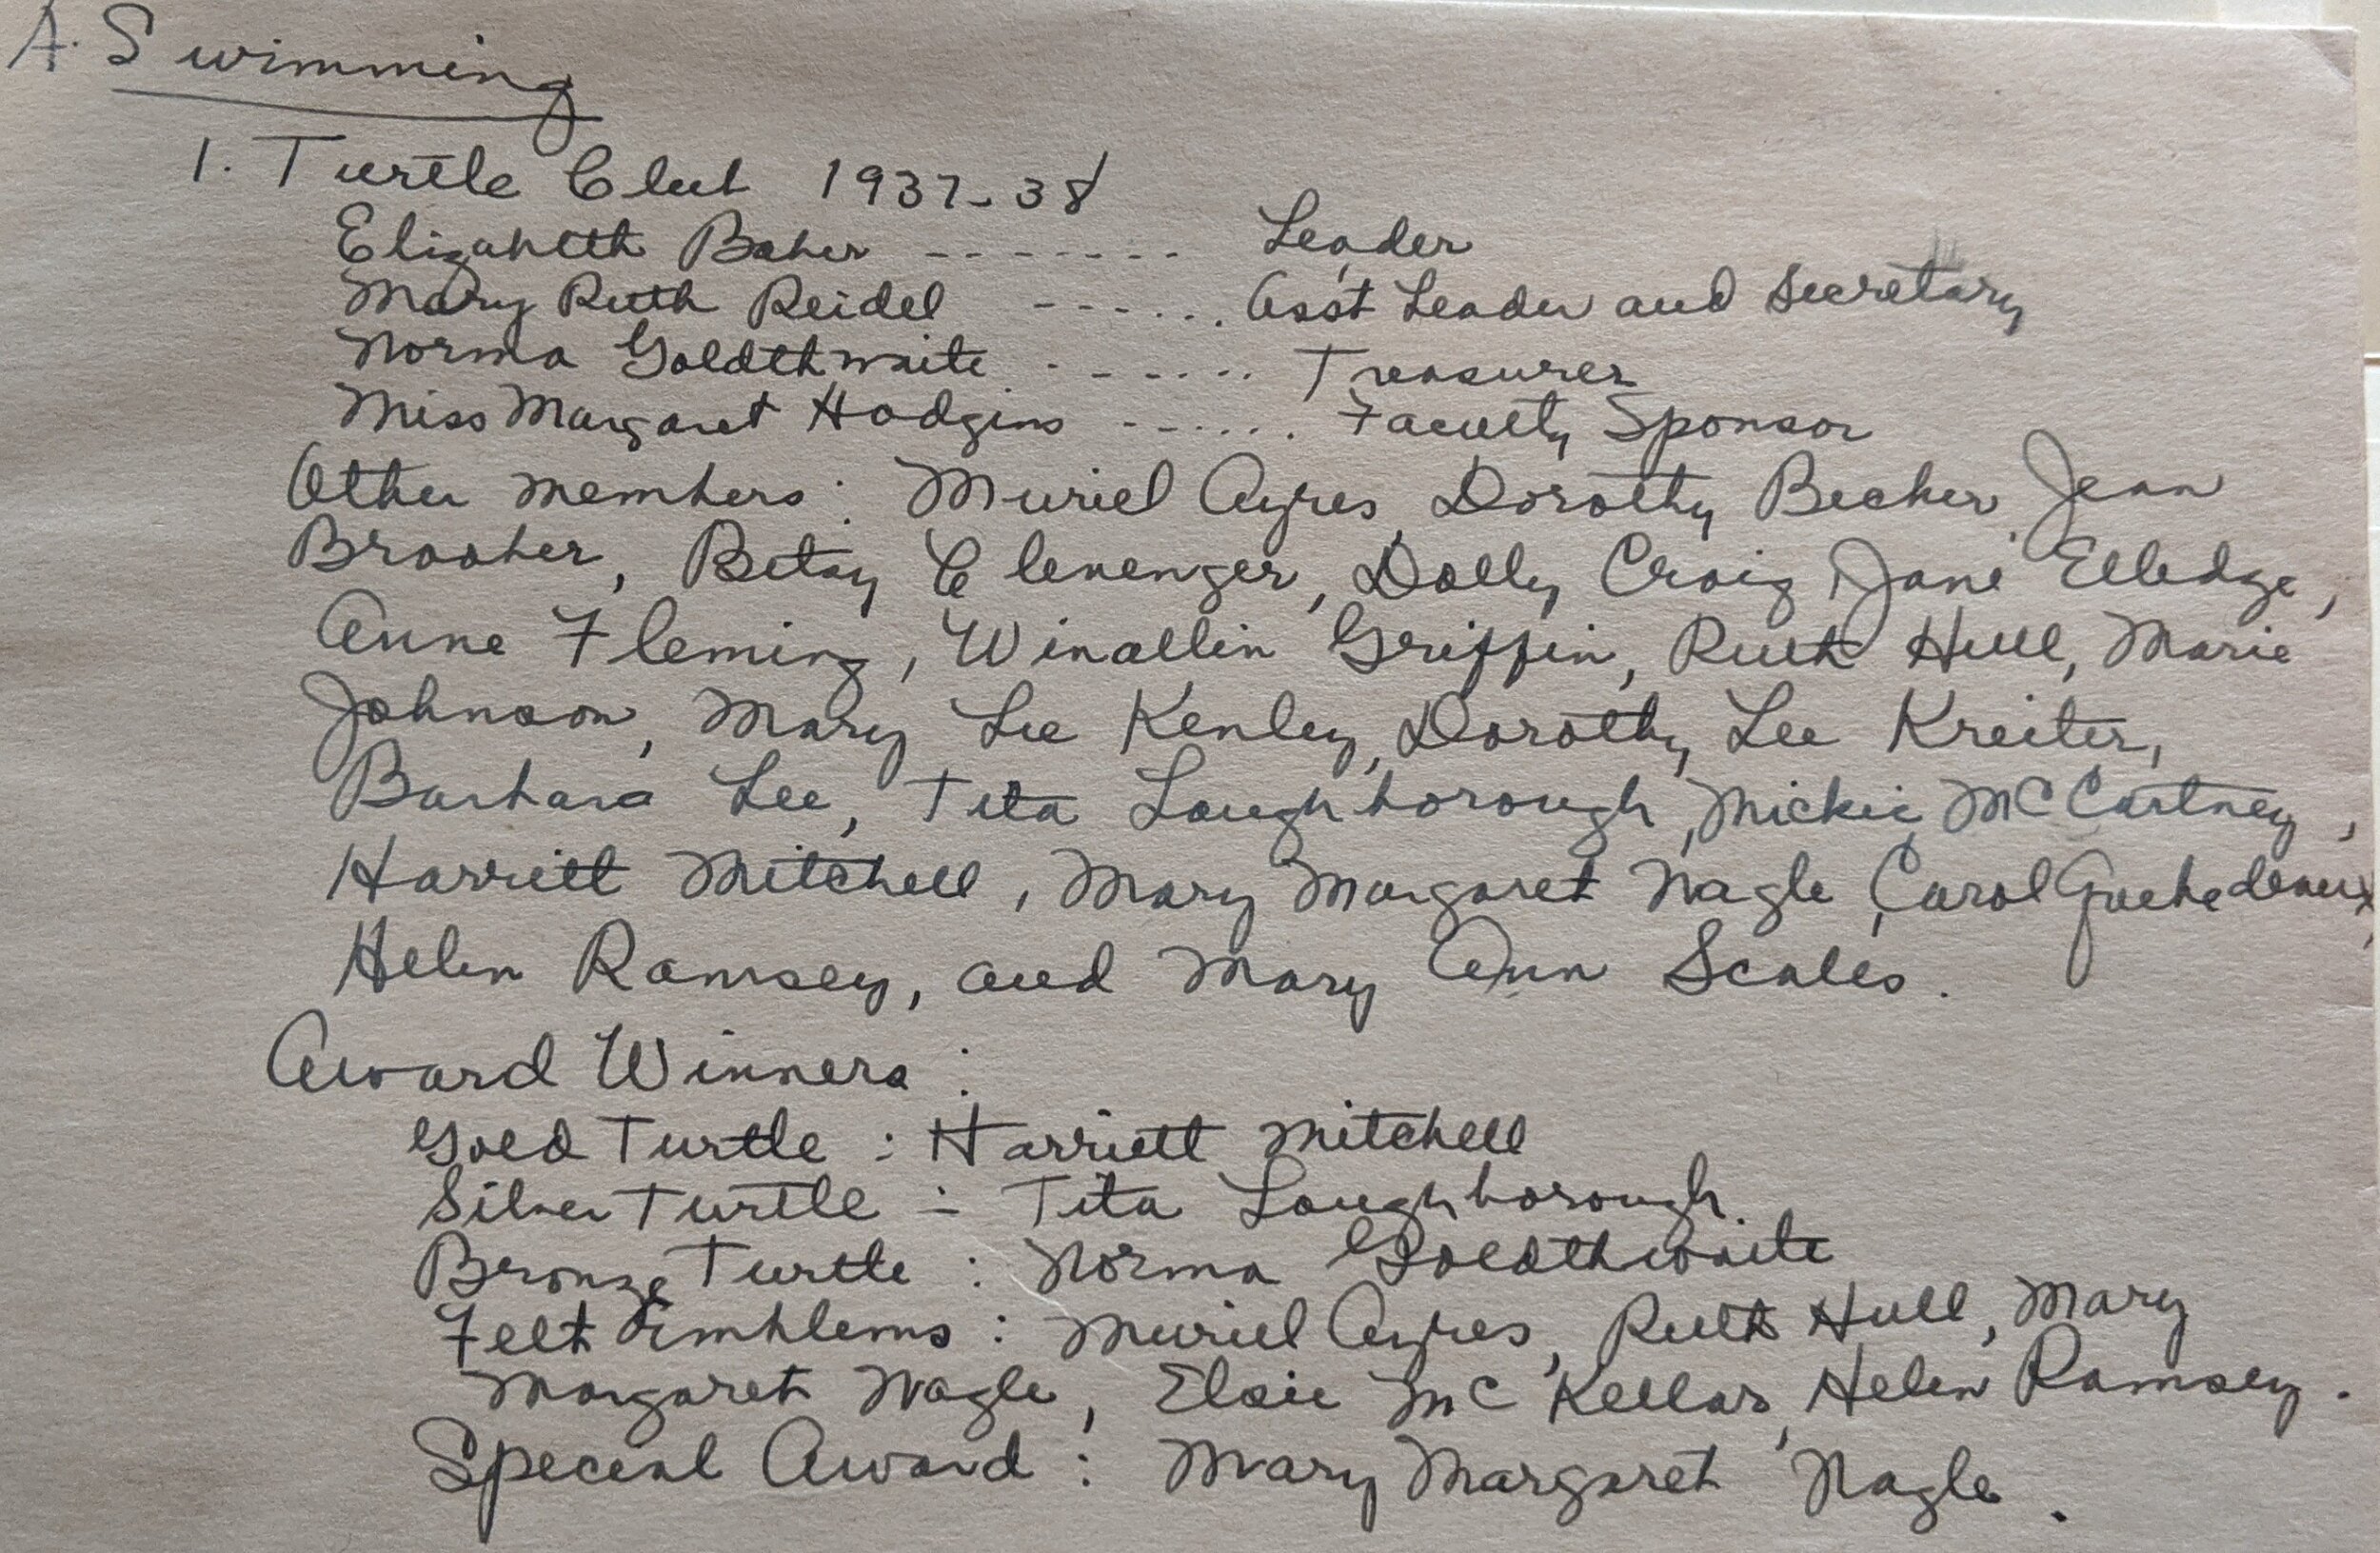 A. Swimming
1. Turtle Club 1937-38
Elizabeth Baker ------- Leader
Mary Ruth Reidel ------ Asst Leader and Secretary
Norma Goldthwaite ------ Treasurer
Miss Margaret Hodgins ------ Faculty Sponsor
Other members: Muriel Ayres, Dorothy Becker, Jean
Brooker, Betsy Clevenger, Dolly Craig, Jane Elledge,
Anne Fleming, Winallin Griffin, Ruth Hull, Marie
Johnson, Mary Lee Kenley, Dorothy Lee Kreiter,
Barbara Lee, Tita Loughborough, Mickie McCartney,
Harriett Mitchell, Mary Margaret Nagle, Carol
Helen Ramsey, and Mary Ann Scales.
Award Winners:
Gold Turtle: Harriett Mitchell
Silver Turtle: Tita Loughborough.
Bronze Turtle: Norma Goldthwaite
Felt Emblems: Muriel Ayres, Ruth Hull, Mary
Margaret Nagle, Elsie McKellar, Helen Ramsey.
Special Award: Mary Margaret Nagle.